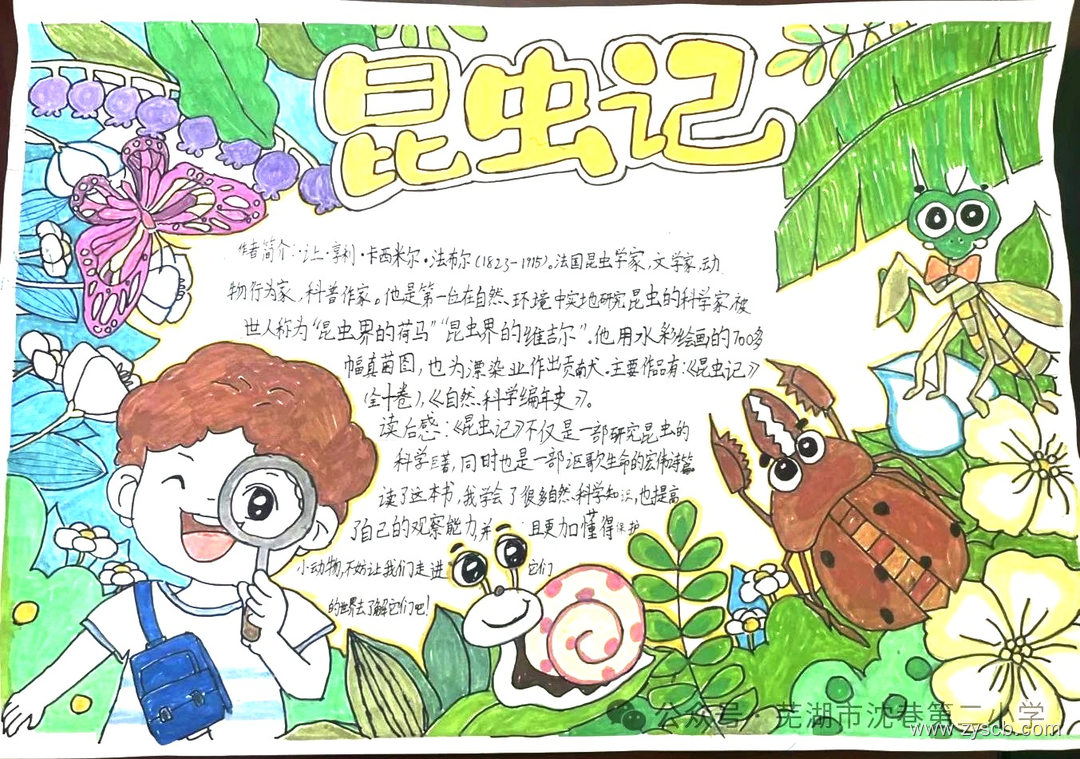 昆虫记
作者简介:让·亨利·卡西米尔·法布尔(1823-1915)。法国昆虫学家,文学家,动
物行为家,科普作家。他是第一位在自然环境中实地研究昆虫的科学家,被
世人称为“昆虫界的荷马”“昆虫界的维吉尔”。他用水彩绘画的700多
幅真菌图,也为漂染业作出贡献。主要作品有:《昆虫记》
(全十卷),《自然科学编年史》。
读后感:《昆虫记》不仅是一部研究昆虫的
科学巨著,同时也是一部讴歌生命的宏伟诗篇
读了这本书,我学会了很多自然科学知识,也提高
了自己的观察能力,并且更加懂得保护
小动物,不妨让我们走进它们
的世界去了解它们吧!
公众号·芜湖市沈巷第二小学
www.zyscb.com